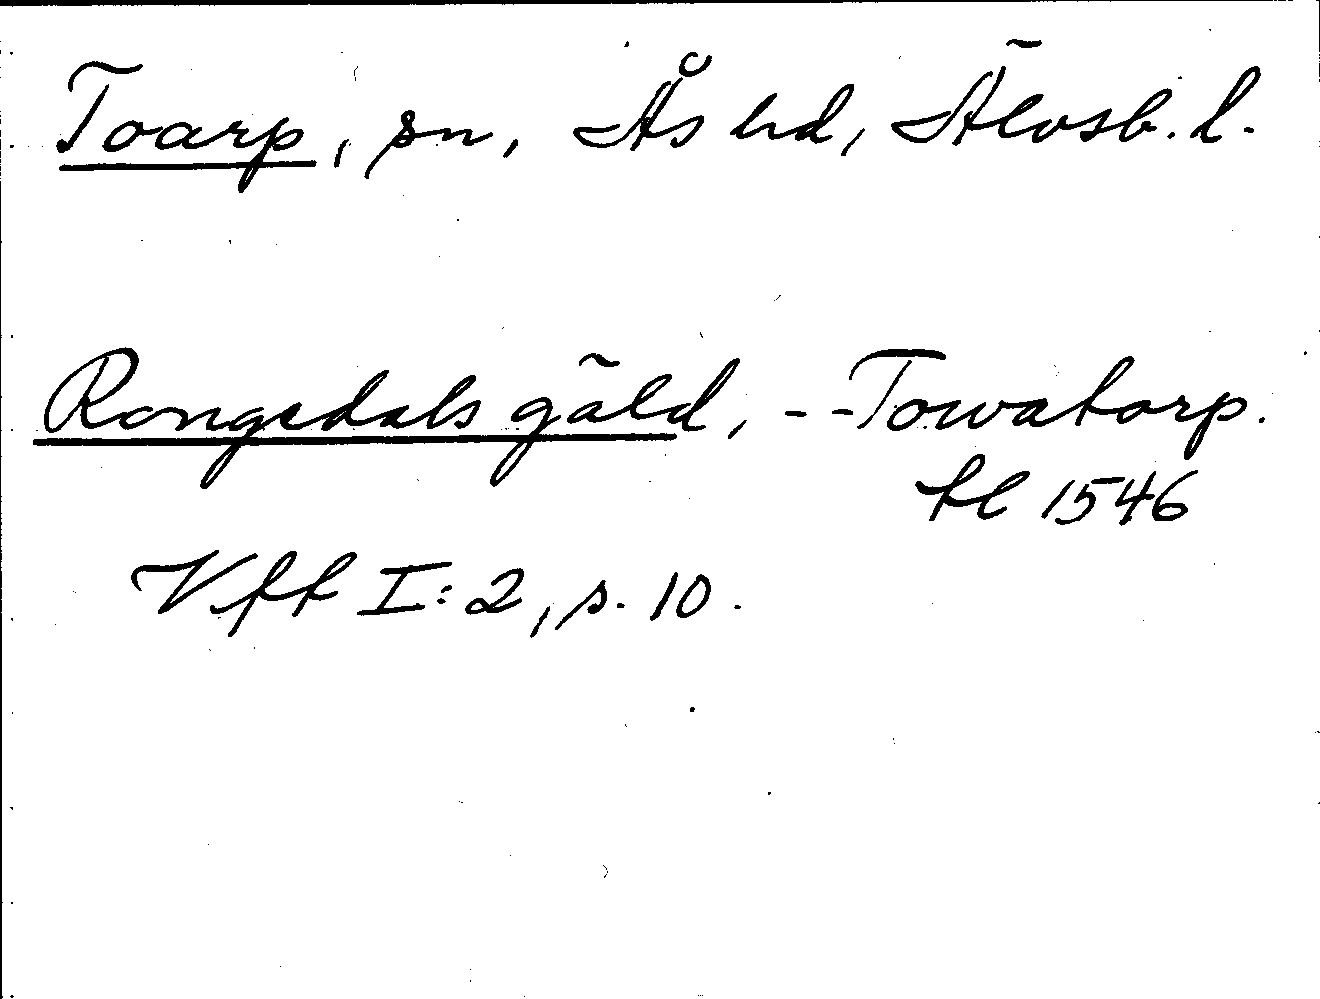 Toarp, sn, Ås hd, Älvsb. l.
Rongedals gäld, -- Towatorp.
tl 1546
Vff I:2, s. 10.